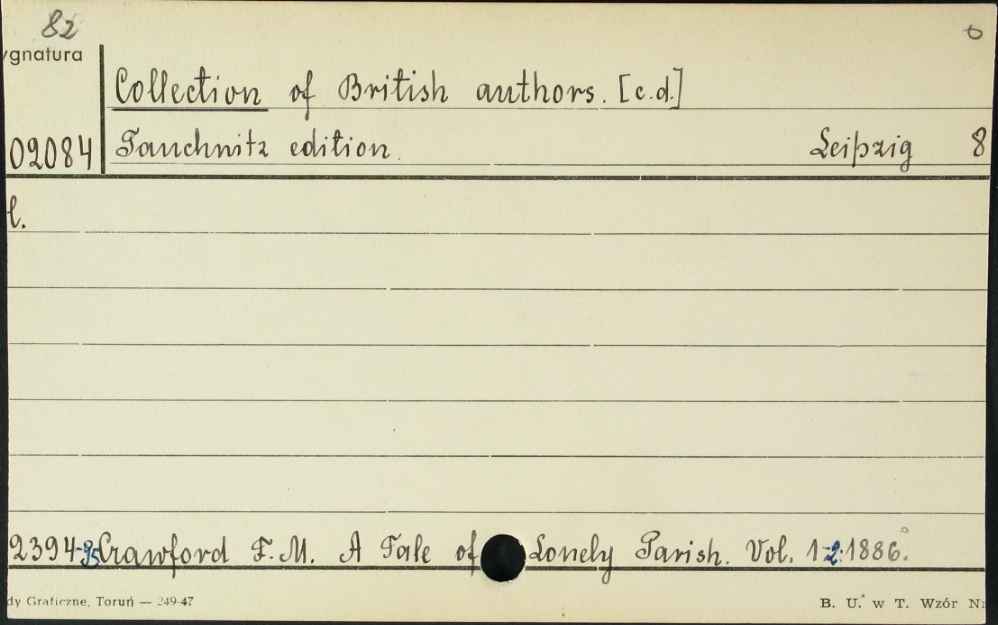 82
ygnatura
Collection of British authors. [c.d.]
02084 Tauchnitz edition. Leipzig 8
l.
2394-95 Crawford F. M. A Tale of Lonely Parish. Vol. 1-2. 1886.
dy Graficzne, Toruń — 249-47
B. U. w T. Wzór Nr